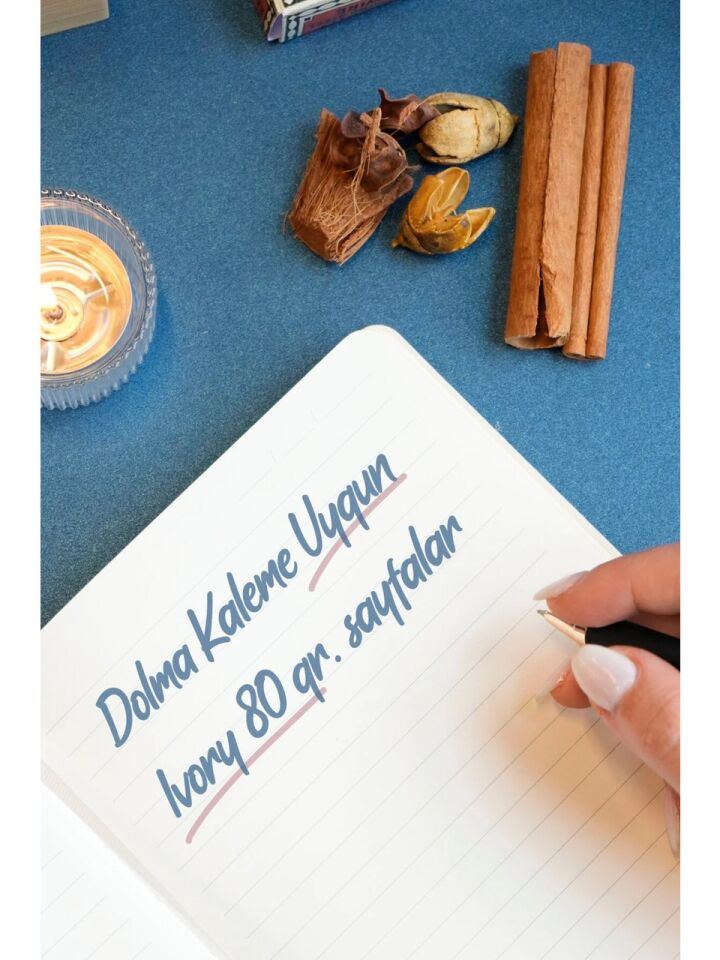 Dolma Kaleme Uygun
Ivory 80 gr. sayfalar